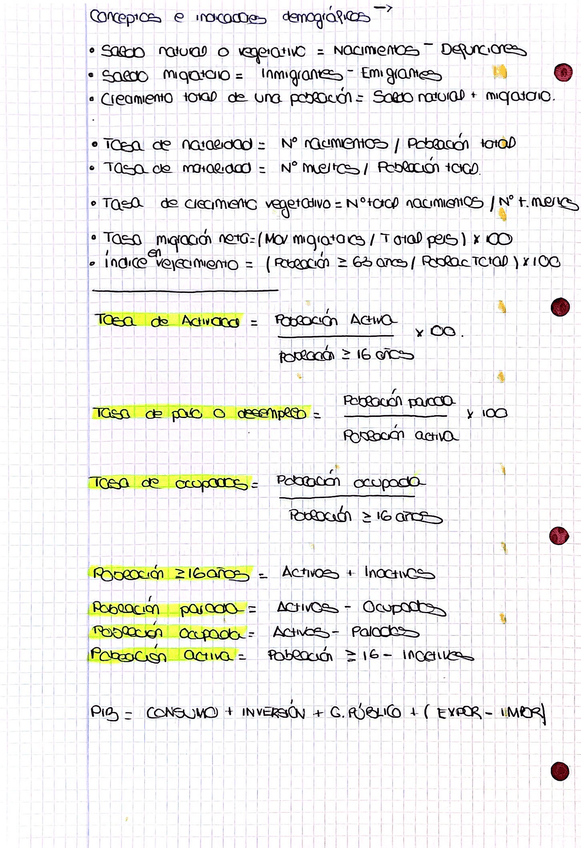 Conceptos e indicadores demográficos →
• Saldo natural o vegetativo = Nacimientos - Defunciones
• Saldo migratorio = Inmigrantes - Emigrantes
• Crecimiento total de una población = Saldo natural + migratorio.
• Tasa de natalidad = Nº nacimientos / Población total
• Tasa de mortalidad = Nº muertos / Población total.
• Tasa de crecimiento vegetativo = Nº total nacimientos / Nº t. muertos
• Tasa migración neta = (Mov migratorios / Total pers) x 100
• índice envejecimiento = (Población ≥ 65 años / Poblac Total) x 100
Tasa de Actividad = Población Activa / Población ≥ 16 años x 100.
Tasa de paro o desempleo = Población parada / Población activa x 100
Tasa de ocupados = Población ocupada / Población ≥ 16 años
Población ≥ 16 años = Activos + Inactivos
Población parada = Activos - Ocupados
Población ocupada = Activos - Parados
Población activa = Población ≥ 16 - Inactivos
PIB = CONSUMO + INVERSIÓN + G. PÚBLICO + (EXPOR - IMPOR)